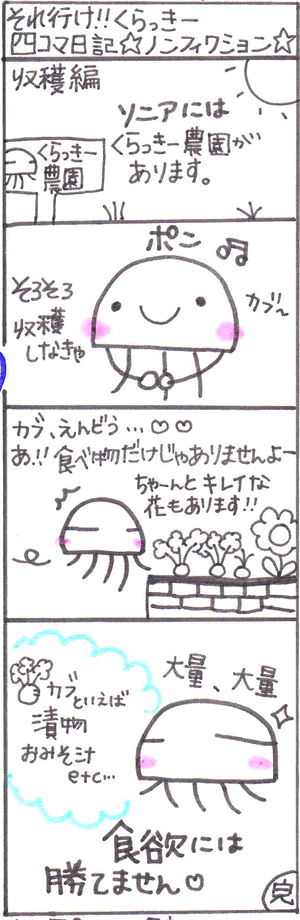 それ行け!!くらっきー
四コマ日記☆ノンフィクション☆
収穫編
ソニアには
くらっきー農園が
あります。
くらっきー
農園
ポン♫
そろそろ
収穫
しなきゃ
カブ〜
カブ、えんどう…♡♡
あ!!食べ物だけじゃありませんよー
ちゃーんとキレイな
花もあります!!
大量、大量
カブといえば
漬物
おみそ汁
etc…
食欲には
勝てません♡